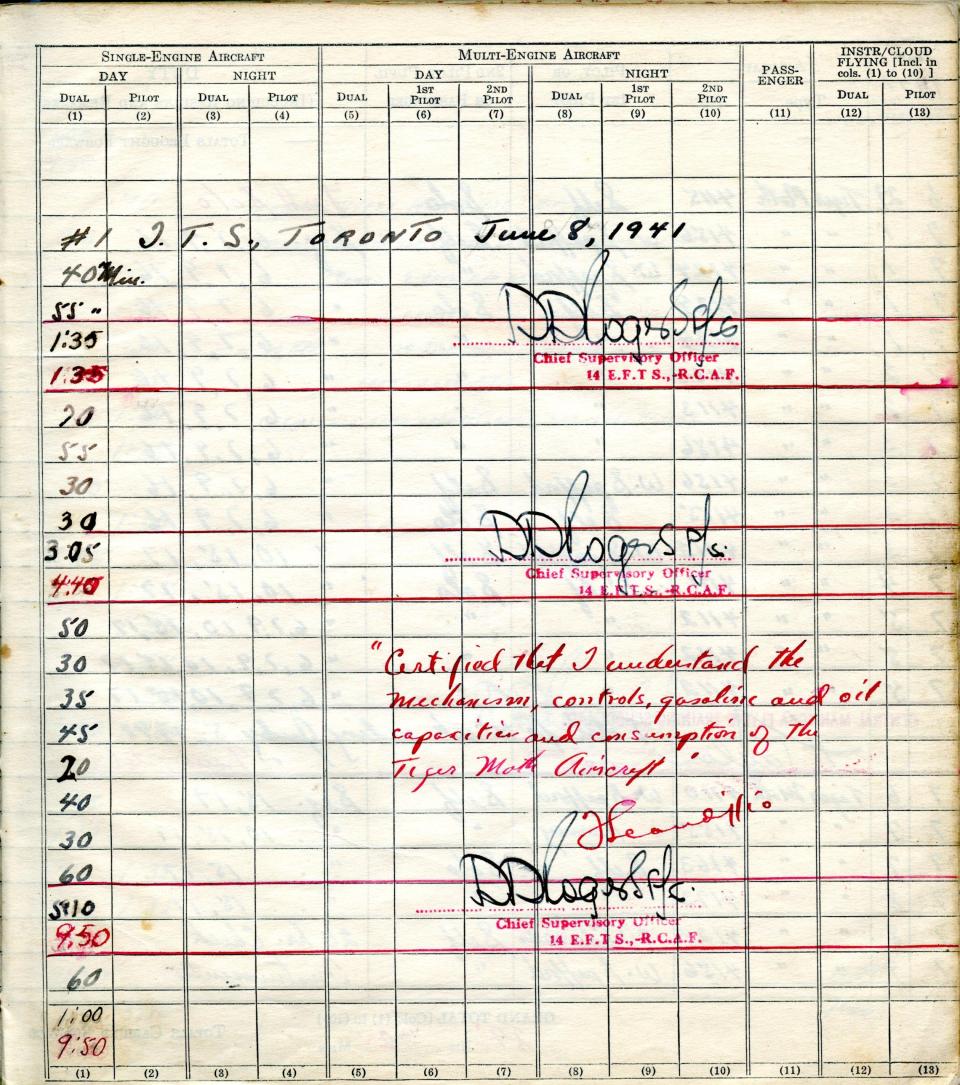 SINGLE-ENGINE AIRCRAFT MULTI-ENGINE AIRCRAFT PASS-ENGER INSTR/CLOUD FLYING [Incl. in cols. (1) to (10) ]
DAY NIGHT DAY NIGHT
DUAL PILOT DUAL PILOT DUAL 1ST PILOT 2ND PILOT DUAL 1ST PILOT 2ND PILOT DUAL PILOT
(1) (2) (3) (4) (5) (6) (7) (8) (9) (10) (11) (12) (13)
#1 I. T. S., TORONTO June 8, 1941
40 Min.
55 "
1:35
Chief Supervisory Officer
1:35 14 E.F.T S.,-R.C.A.F.
20
55
30
30
3:05
Chief Supervisory Officer
4:40 14 E.F.T.S.,-R.C.A.F.
50
30 "Certified that I understand the
35 mechanism, controls, gasoline and oil
45 capacities and consumption of the
20 Tiger Moth Aircraft "
40
30
60
5:10
Chief Supervisory Officer
9:50 14 E.F.T S.,-R.C.A.F.
60
1:00
9:50
(1) (2) (3) (4) (5) (6) (7) (8) (9) (10) (11) (12) (13)